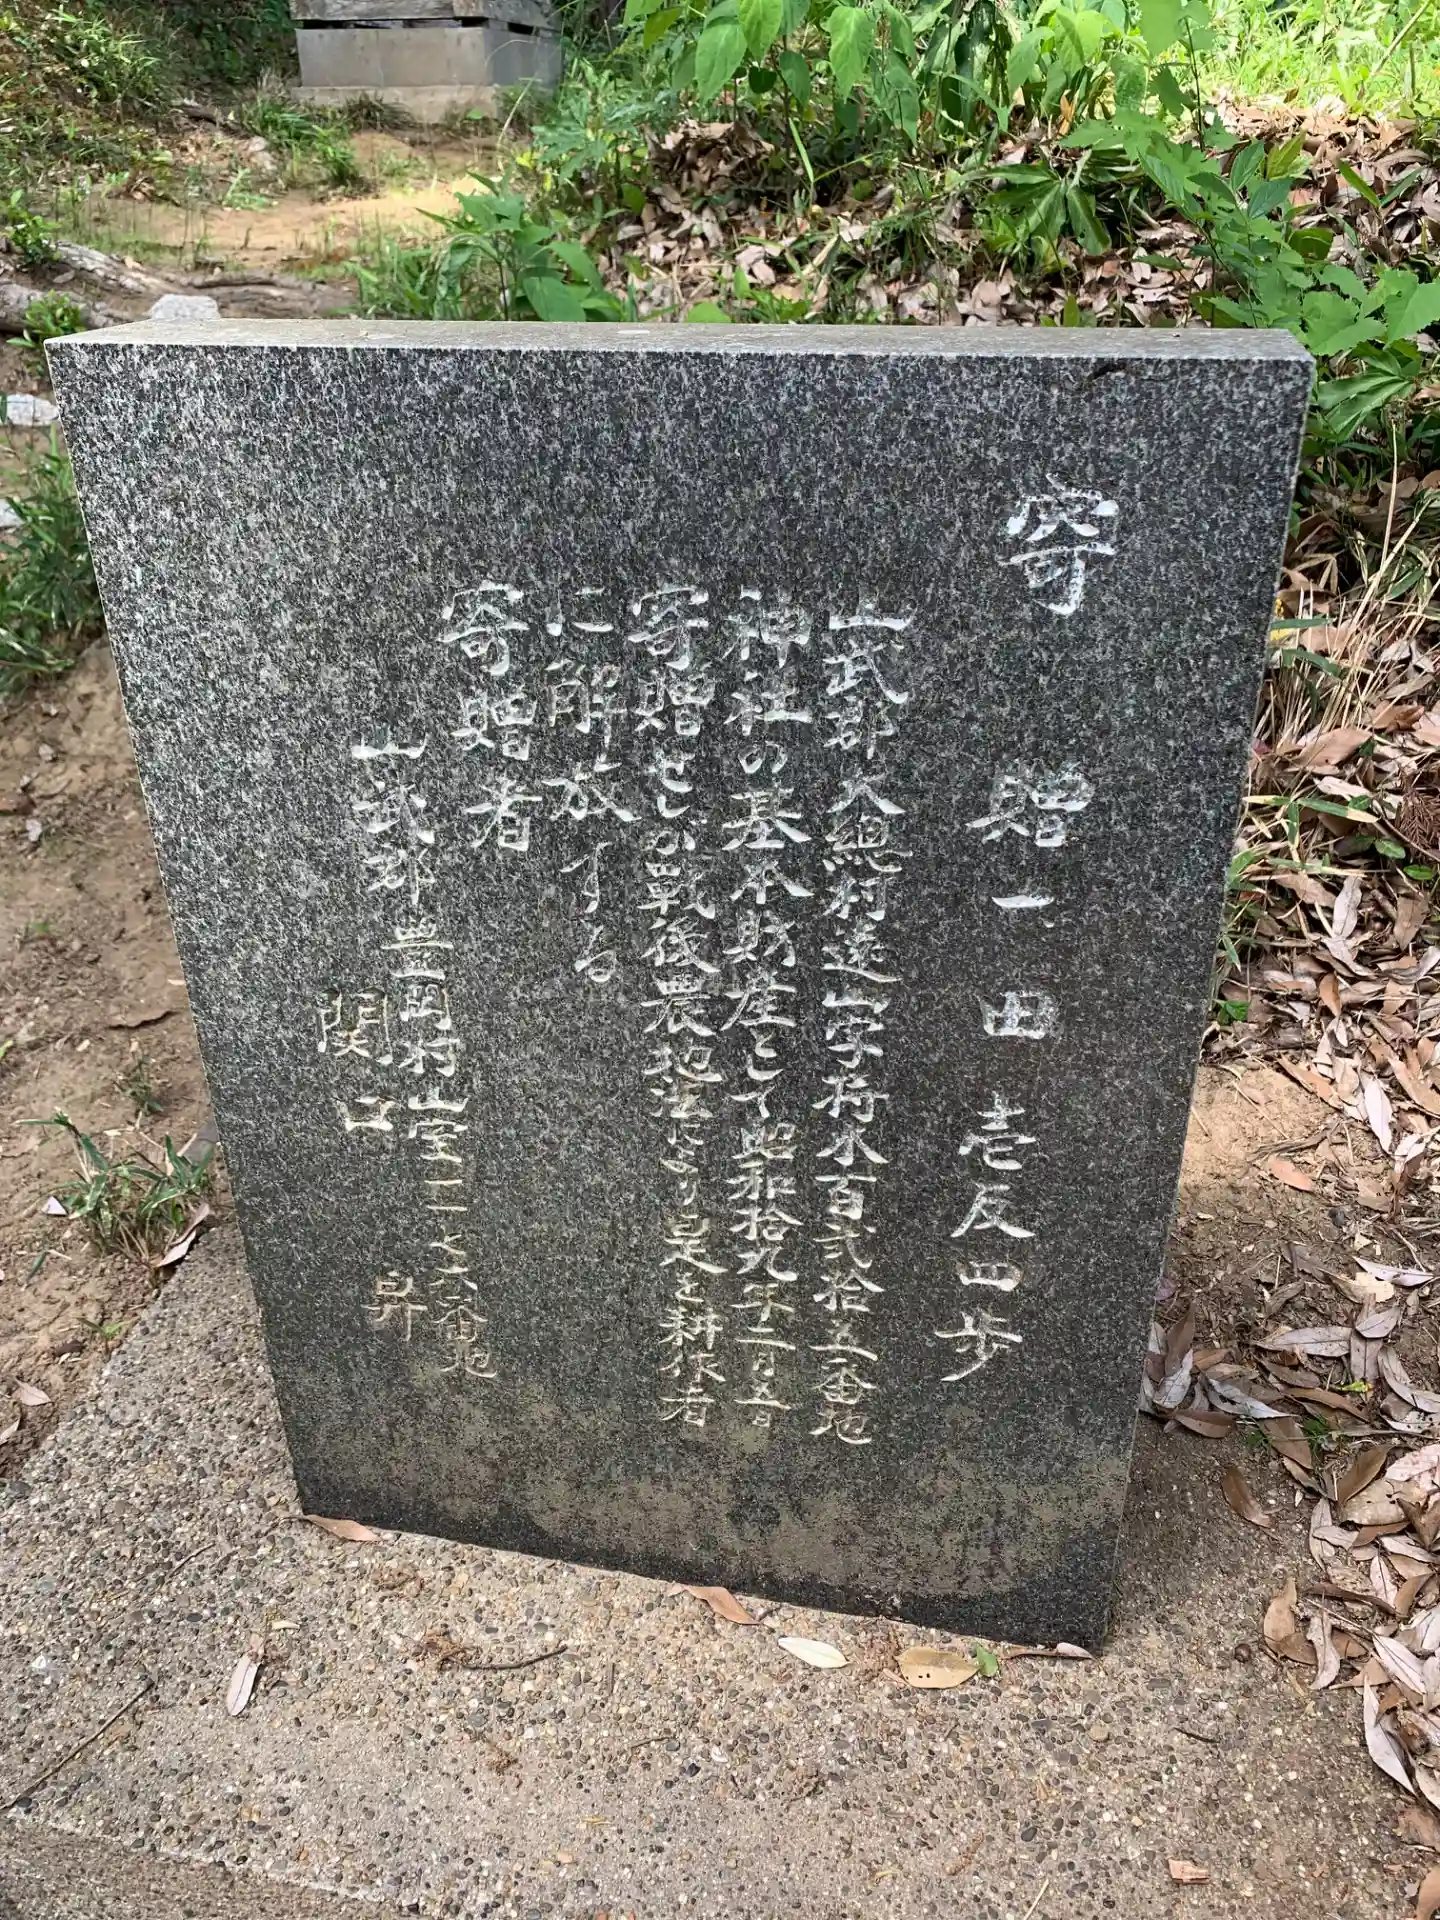 寄贈一、田壱反四歩
山武郡大総村遠山字揚水百弐拾五番地
神社の基本財産として昭和拾九年二月五日
寄贈せしが戦後農地法により是を耕作者
に解放する
寄贈者
山武郡豊岡村山室一一七六番地
関口 昇